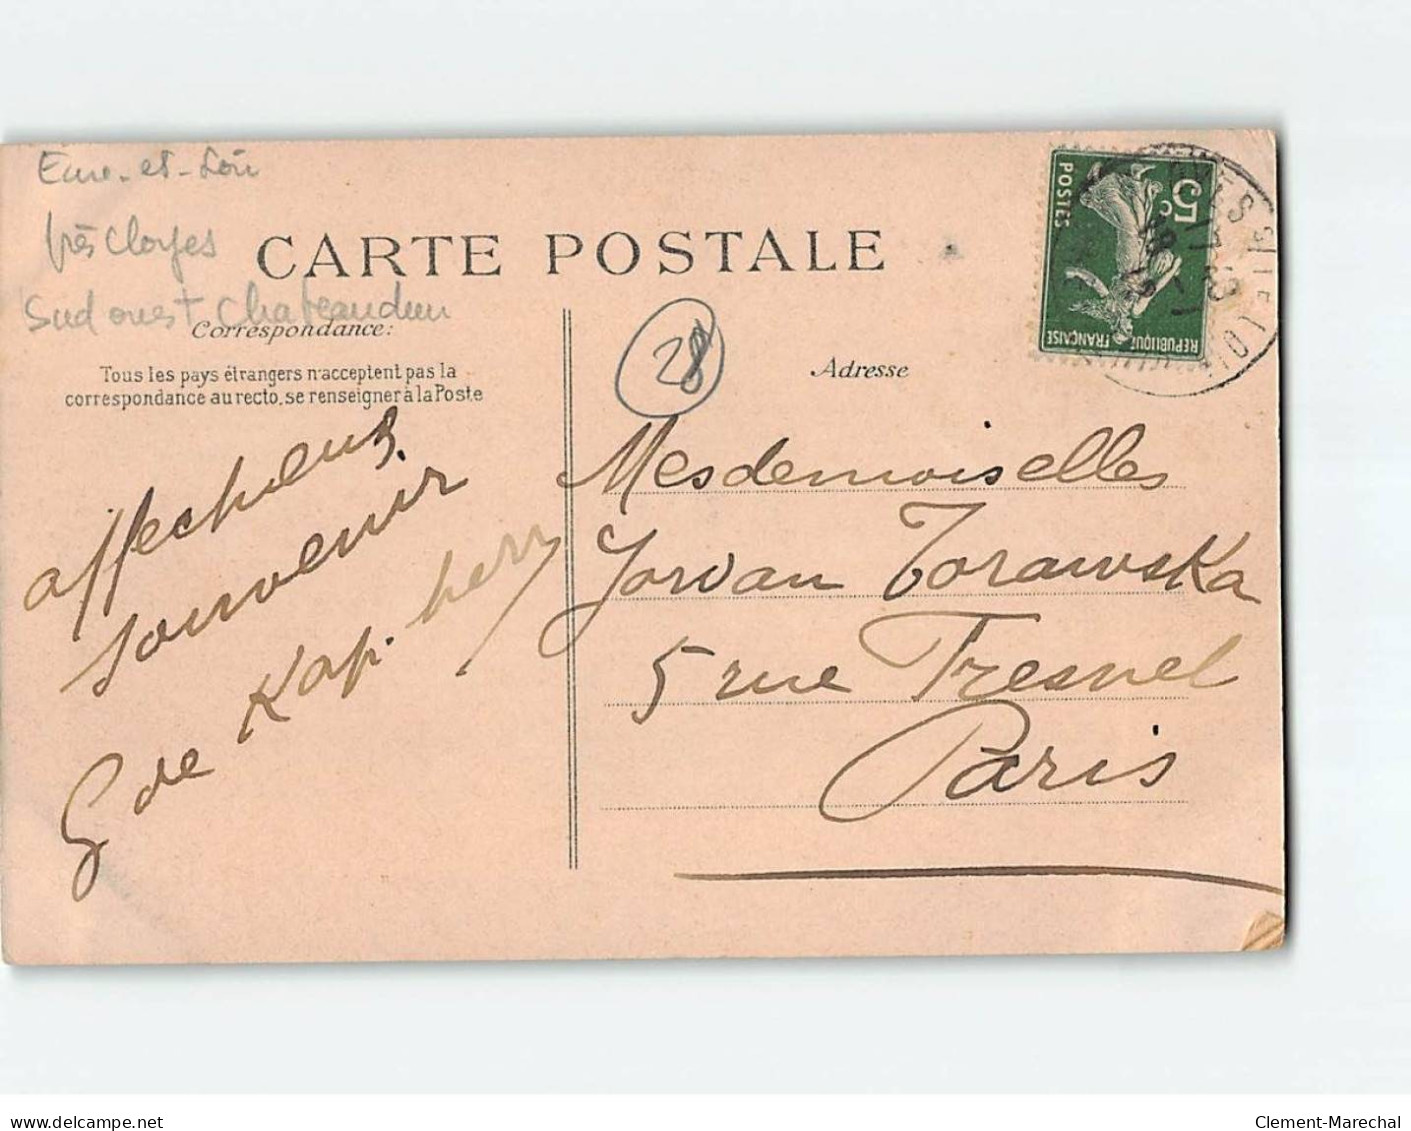 Eure-et-Loir
près Cloyes
Sud ouest Chateaudun
CARTE POSTALE
Correspondance:
Tous les pays étrangers n'acceptent pas la
correspondance au recto, se renseigner à la Poste
28
Adresse
5c
POSTES
REPUBLIQUE FRANÇAISE
affectueux
souvenir
G de Kap. herr
Mesdemoiselles
Jorvan Torawska
5 rue Fresnel
Paris
delcampe.net
Clement-Marechal